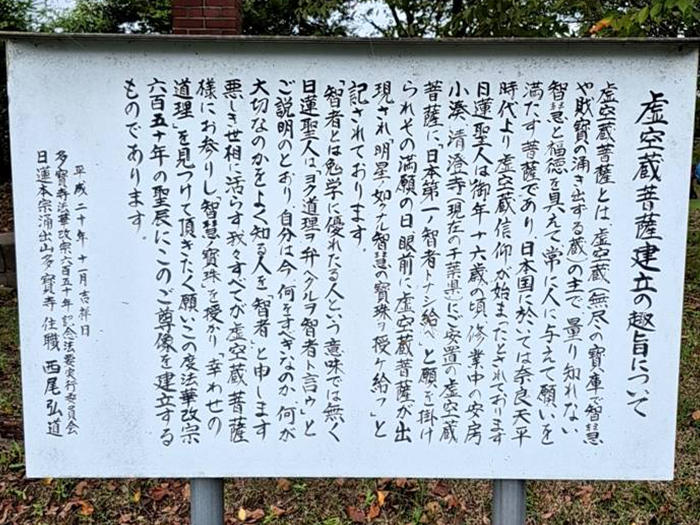 虚空蔵菩薩建立の趣旨について
虚空蔵菩薩とは、虚空蔵(無尽の寶庫で智慧
や財寶の涌き出ずる蔵)の主で、量り知れない
智慧と福徳を具えて常に人に与えて願いを
満たす菩薩であり、日本国に於いては奈良天平
時代より虚空蔵信仰が始まったとされております
日蓮聖人は御年十六歳の頃、修業中の安房
小湊、清澄寺(現在の千葉県)にご安置の虚空蔵
菩薩に、「日本第一ノ智者トナシ給へ」と願を掛け
られその満願の日、眼前に虚空蔵菩薩が出
現され「明星ノ如クナル智慧の寶珠ヲ授ケ給フ」と
記されております。
「智者とは勉学に優れたる人という意味では無く
日蓮聖人は「ヨク道理ヲ弁ヘタルヲ智者ト言ウ」と
ご説明のとおり、自分は今、何をすべきなのか、何が
大切なのかをよく知る人を「智者」と申します
悪しき世相に活らす我々すべてが虚空蔵菩薩
様にお参りし「智慧ノ寶珠」を授かり「幸わせの
道理」を見つけて頂きたく願い、この度法華改宗
六百五十年の聖辰にこのご尊像を建立する
ものであります。
平成二十年十一月吉祥日
多寶寺法華改宗六百五十年記念法要実行委員会
日蓮本宗涌出山多寶寺 住職 西尾弘道